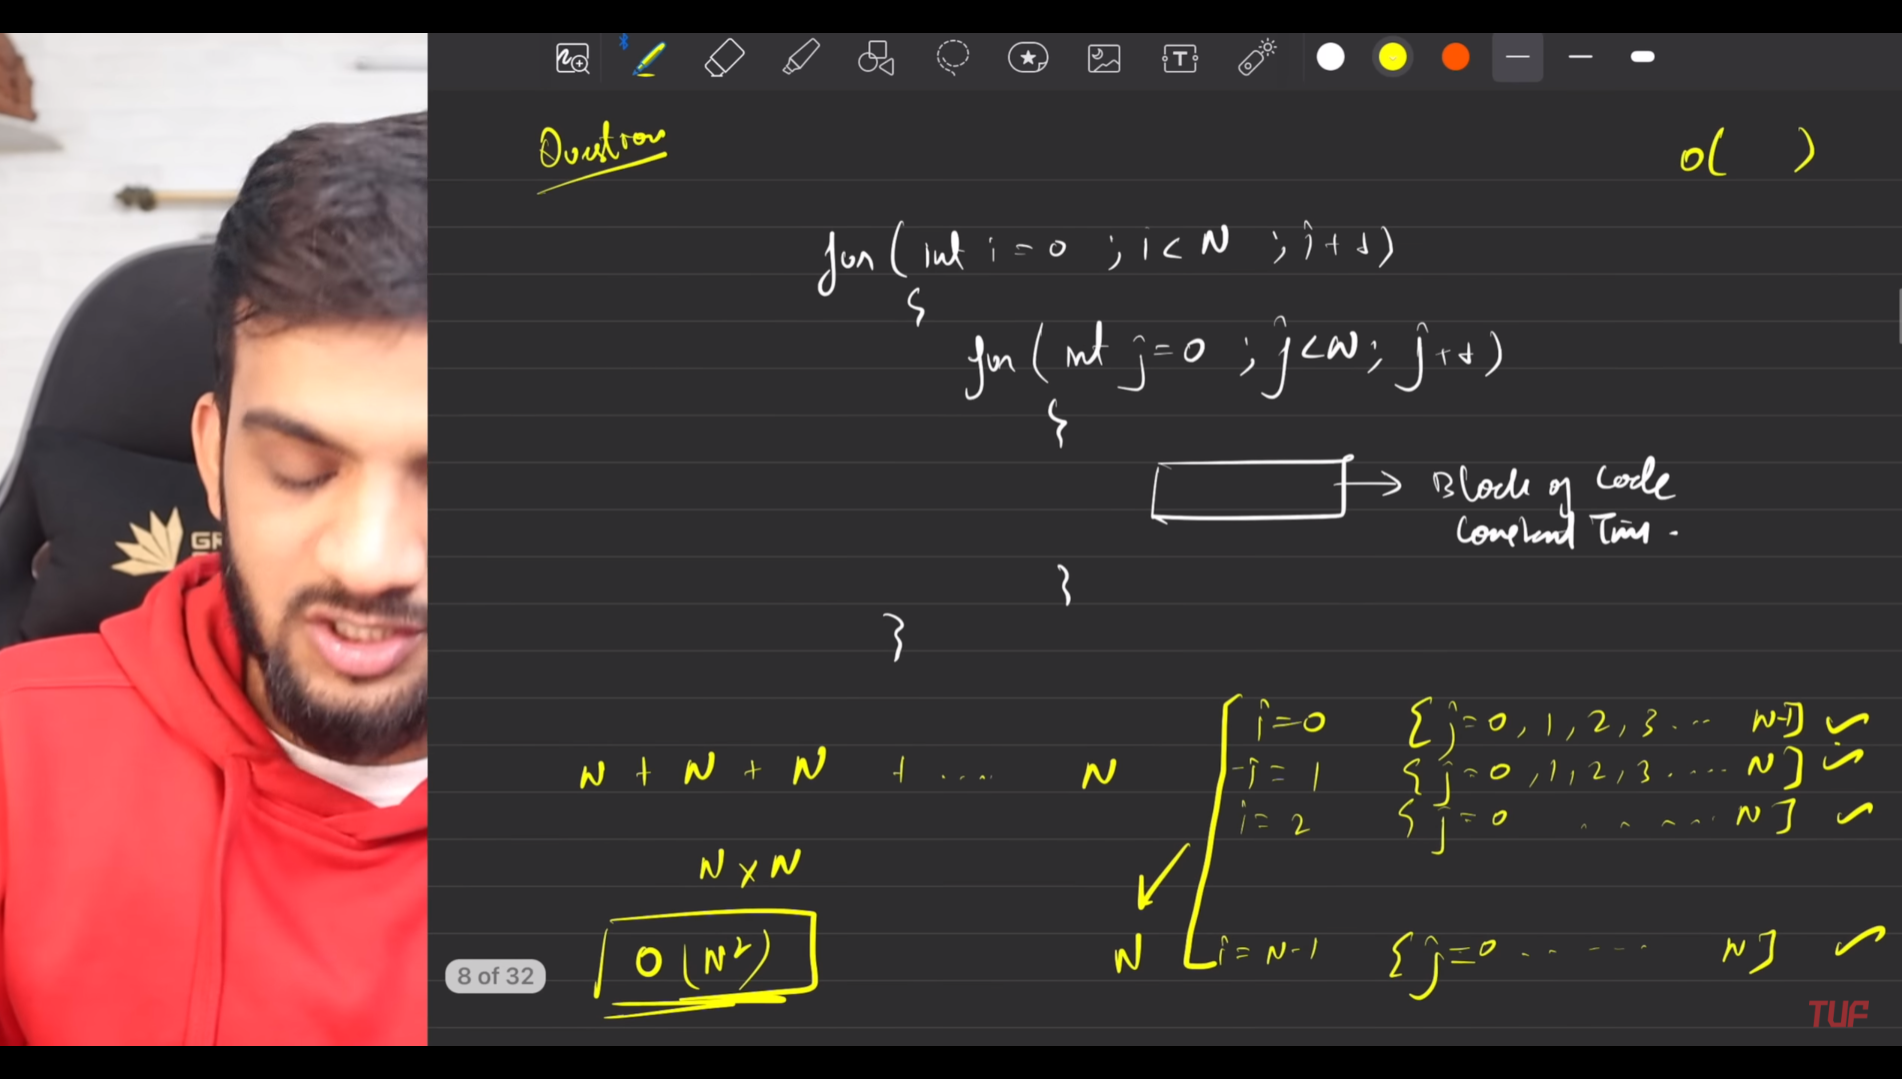 Question
O( )
for( int i = 0 ; i < N ; i++)
{
for( int j = 0 ; j < N ; j++)
{
→ Block of Code
Constant Time .
}
}
N + N + N + .... N
i = 0 { j = 0, 1, 2, 3 ... N-1]
i = 1 { j = 0, 1, 2, 3 .... N ]
i = 2 { j = 0 ..... N ]
N x N
O (N²)
N
i = N-1 { j = 0 ..... N ]
8 of 32
GR
TUF